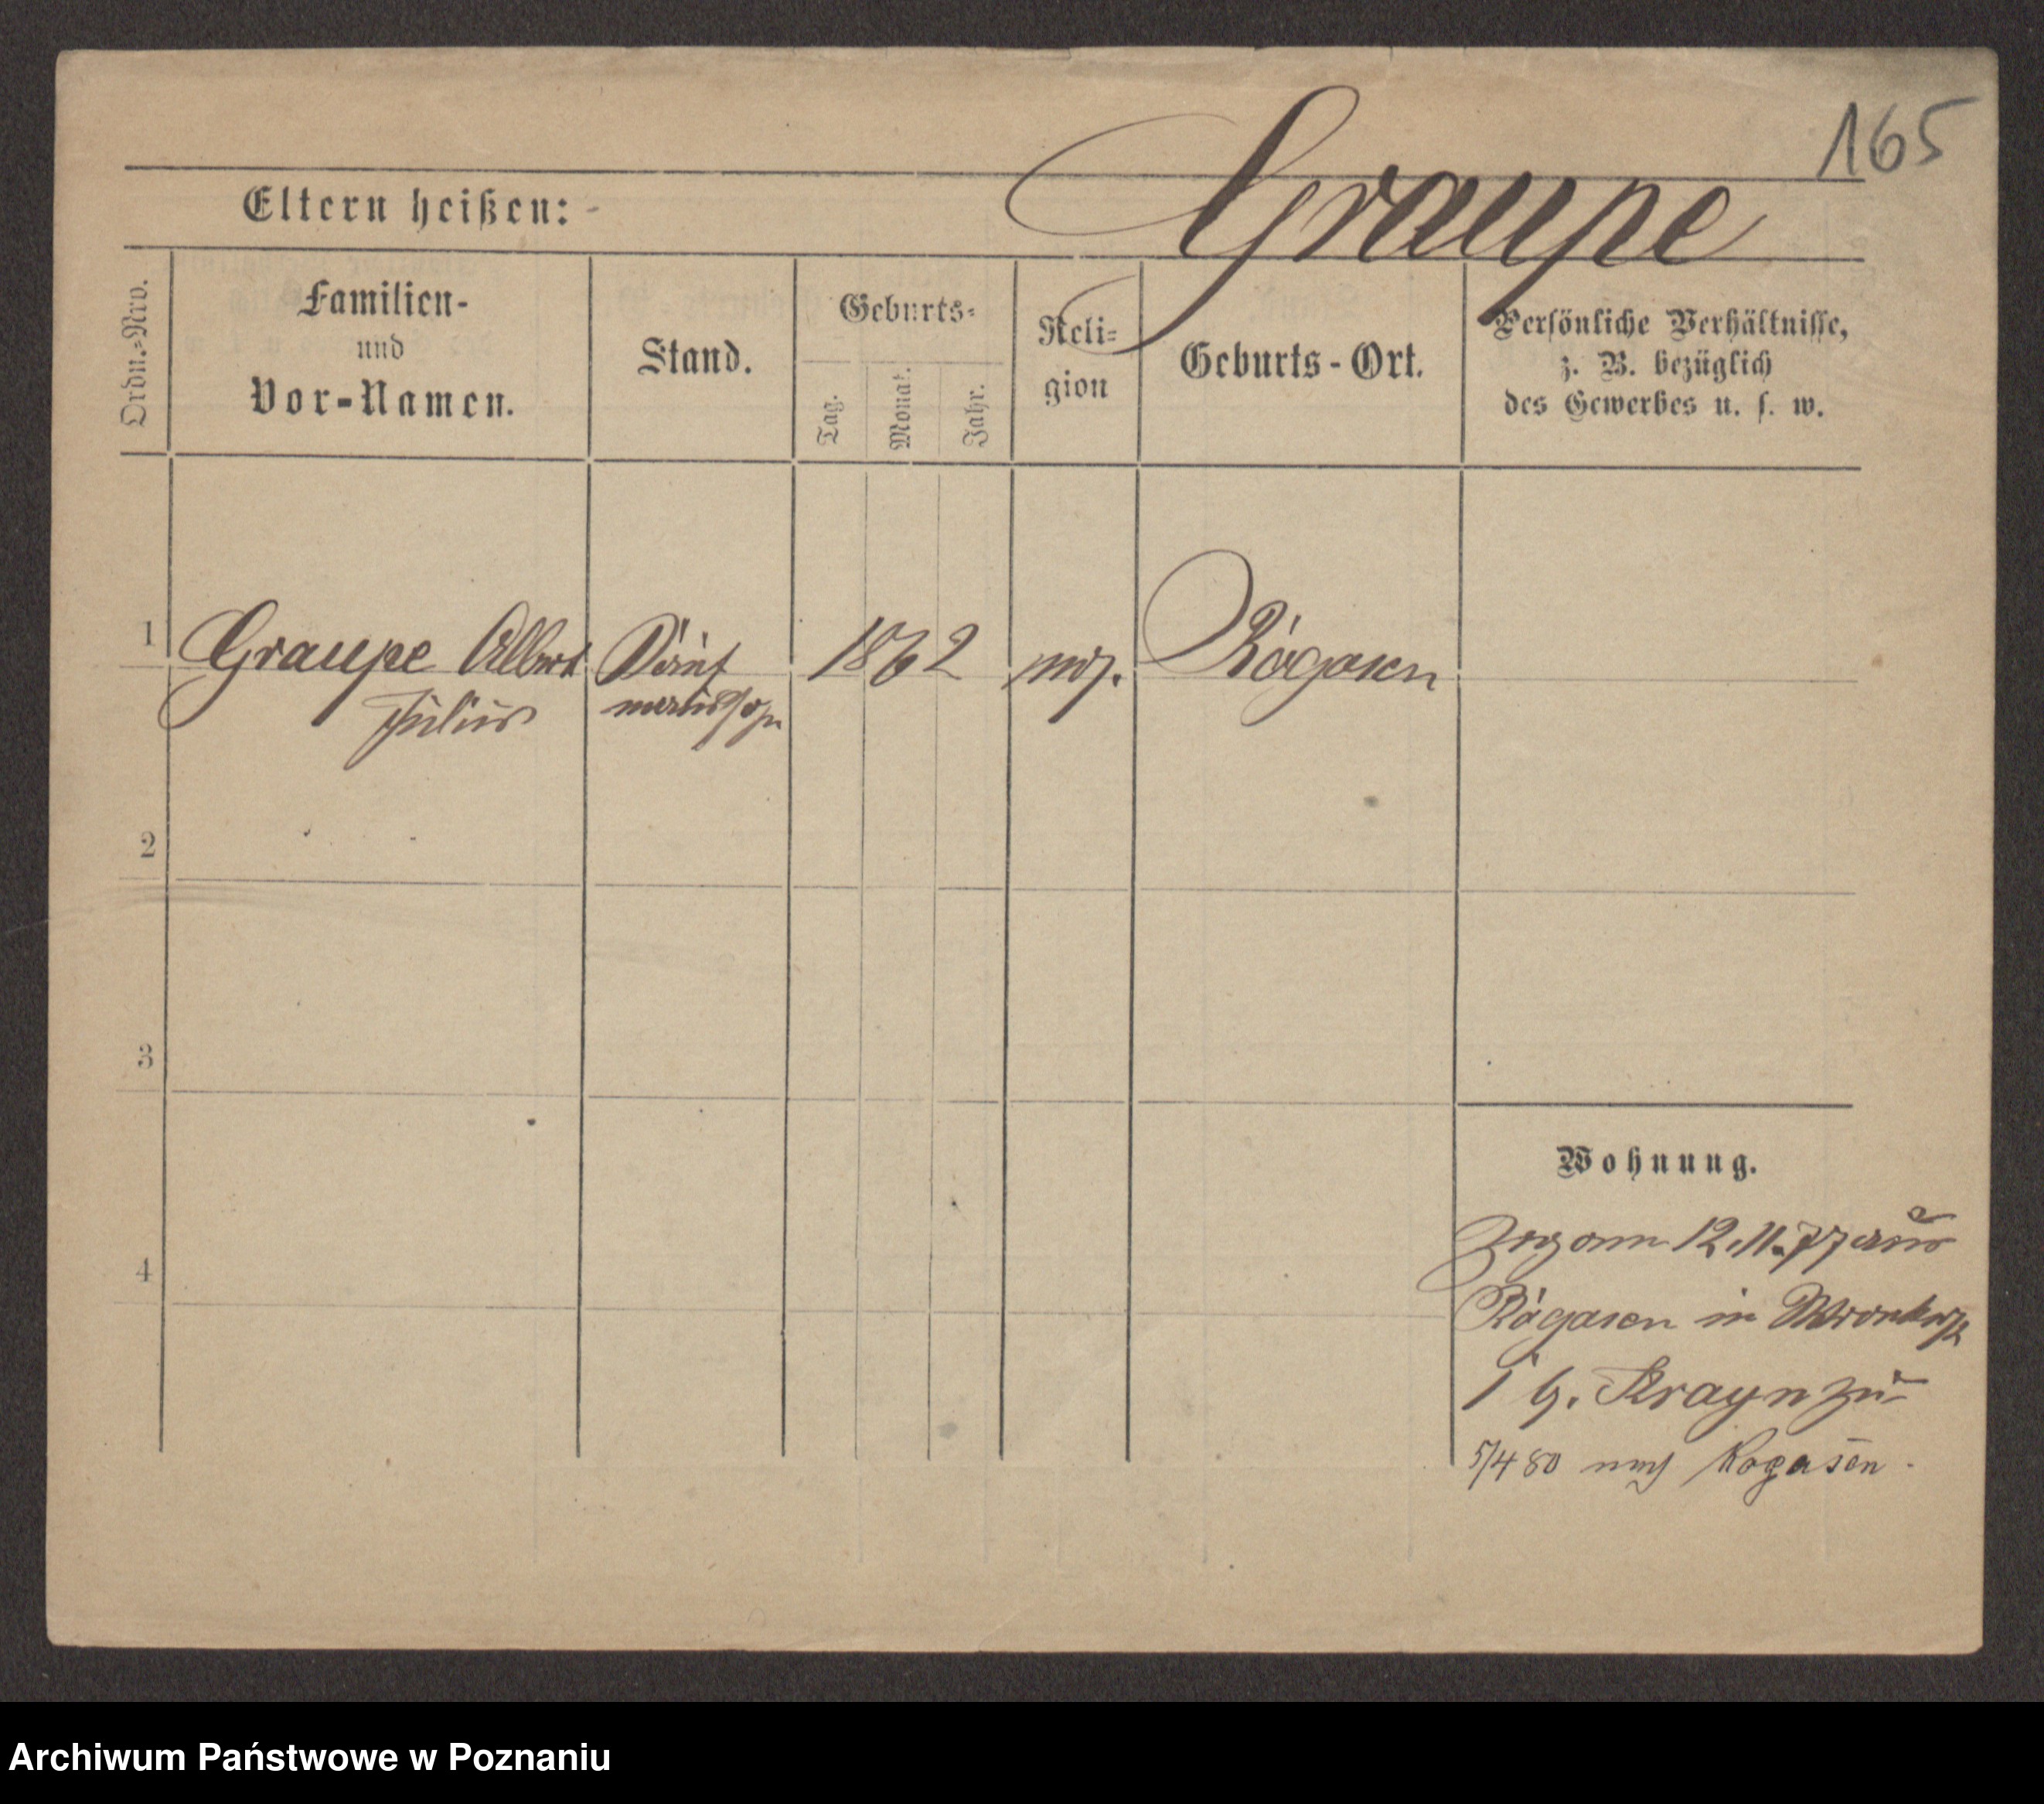 165
Graupe
Eltern heißen: -
Ordn.-Nro.
Familien-
und
Vor-Namen.
Stand.
Geburts-
Tag.
Monat.
Jahr.
Reli-
gion
Geburts-Ort.
Persönliche Verhältnisse,
z. B. bezüglich
des Gewerbes u. s. w.
1 Graupe Albert 1862 Rogasen
Julius
2
3
4
Wohnung.
Zog am 12.11.77 aus
Rogasen in
Krayn zu
5/4 80 nach Rogasen.
Archiwum Państwowe w Poznaniu